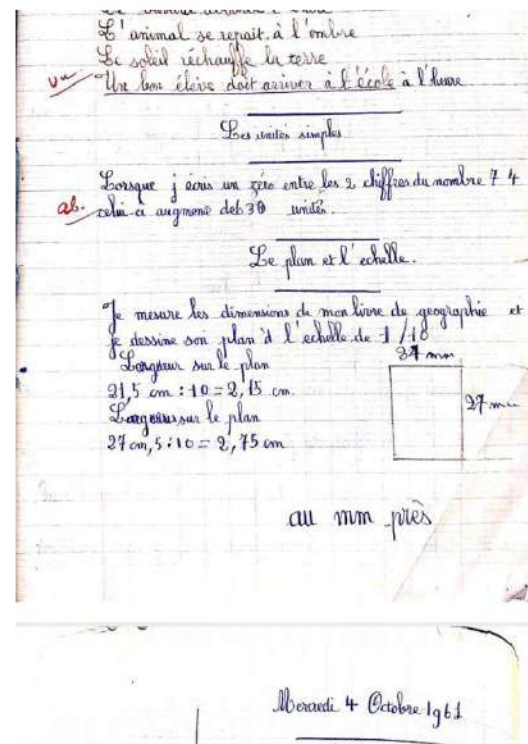 L'animal se repait à l'ombre
Le soleil réchauffe la terre
vu Un bon élève doit arriver à l'école à l'heure
Les unités simples
Lorsque j écris un zéro entre les 2 chiffres du nombre 7 4
ab. celui-ci augmene de 630 unités.
Le plan et l'echelle.
Je mesure les dimensions de mon livre de geographie et
je dessine son plan à l'echelle de 1/10
sur le plan
21,5 cm : 10 = 2,15 cm.
sur le plan
27 cm,5 : 10 = 2,75 cm
mm
27 mm
au mm près
Mercredi 4 Octobre 1961